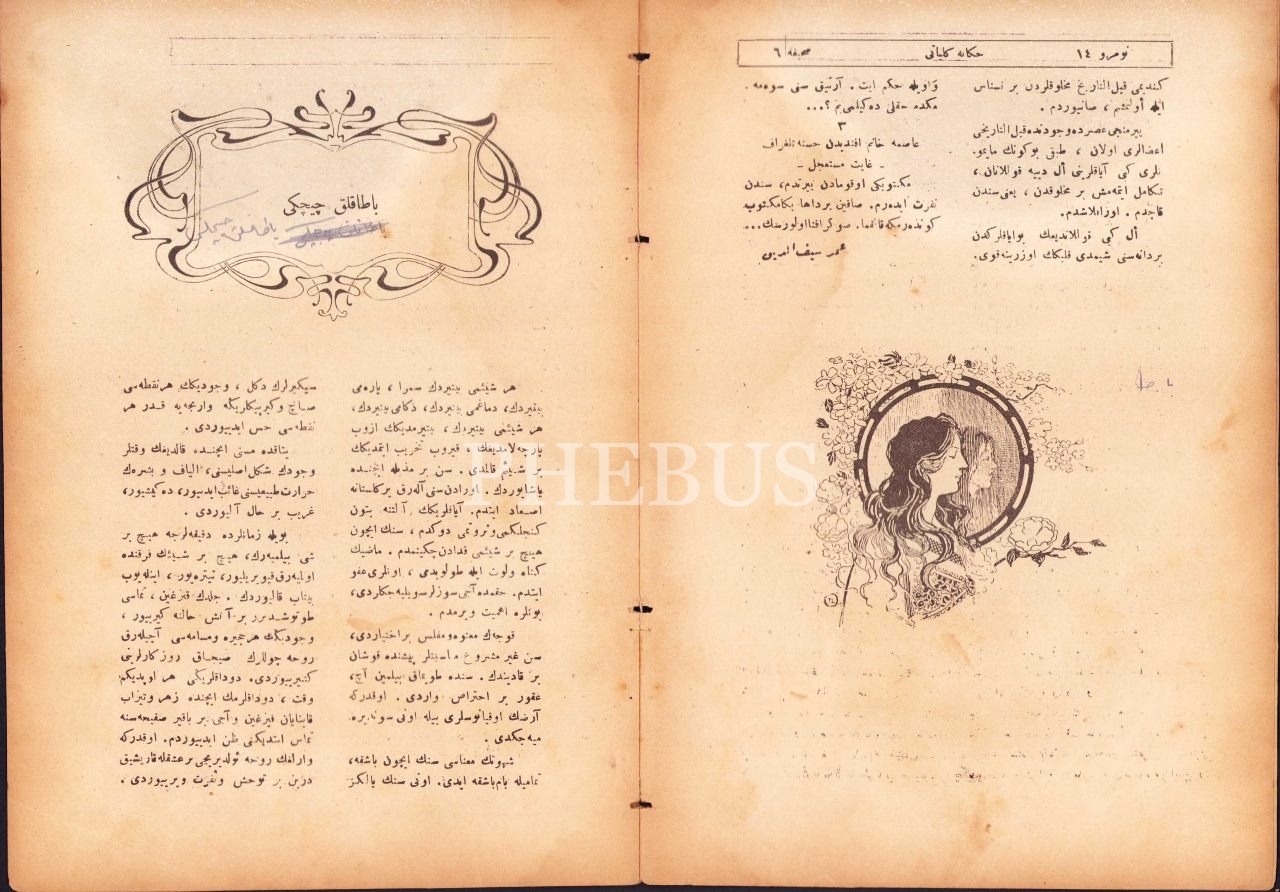 نومرو ١٤
حكايه كلياتى
صحيفه ٦
كنديمى قبل التاريخ مخلوقلردن بر نسناس
ايله أولنمشم ، صانيوردم .
ييرمنجى عصرده وجودنده قبل التاريخى
اعضالرى اولان ، طبقى بوكونك مايمو
نلرى كبى آياقلرينى أل دييه قوللانان ،
تكامل ايتمه مش بر مخلوقدن ، يعنى سندن
قاچدم . اوزاقلاشدم .
أل كبى قوللانديغك بو اياقلركدن
بردانه سنى شيمدى قلبكك اوزرينه قوى .
و اويله حكم ايت . آرتيق سنى سوه مه
مكده حقلى ده كيلمى يم ؟ ...
٣
عاصمه خانم افنديدن حسنه تلغراف
ـ غايت مستعجل ـ
مكتوبكى اوقومادن ييرتدم ، سندن
نفرت ايدەرم . صاقين برداها بكا مكتوب
كوندرمكه قالقما . صوكرا فنا اولورسك ...
محمد سيف الدين
باطاقلق چيچكى
باطاقلق چيچكى
هر شيئمى بيتيردك سمرا ، پاره مى
بيتيردك ، دماغمى بيتيردك ، ذكامى بيتيردك ،
هر شيئمى بيتيردك ، بيتيرمديكك ازوب
پارچه لامديغك ، قيروب تخريب ايتمديكك
بر شيئم قالمدى . سن بر مزبله ايچنده
ياشايوردك . اورادن سنى آله رق بر كاشانه
اصعاد ايتدم . آياقلريكك آلتنه بتون
كنجلكمى و ثروتمى دوكدم ، سنك ايچون
هيچ بر شيئمى فدادن چكينمدم . ماضيك
كناه و لوث ايله طولويدى ، اونلرى عفو
ايتدم . حقمده آجى سوزلر سويليه جكلردى ،
بونلره اهميت ويرمدم .
قوجه ك معتوه و مفلس بر اختياردى ،
سن غير مشروع ماسبتلر پشنده قوشان
بر قاديندك . سنده طويماق بيلمين آچ ،
عقور بر احتراص واردى . اوقدركه
آرضك اوقيانوسلرى بيله اونى سوندیره
ميه جكدى .
شهوتك معناسى سنك ايچون باشقه ،
تماميله بام باشقه ايدى . اونى سنك يالكز
سيكيرلرك دكل ، وجوديكك هر نقطه سى
صاچ و كيرپيكلريكه وارنجه يه قدر هر
نقطه سى حس ايدييوردى .
بتاقده مستى ايچنده قالديغك وقتلر
وجودك شكل اصليسنى ، الياف و بشره ك
حرارت طبيعيسنى غائب ايدييور ، ده كيشيور ،
غريب بر حال آلیوردى .
بويله زمانلرده دقيقه لرجه هيچ بر
شى بيلميه رك ، هيچ بر شيئك فرقنده
اوليه رق قيوريليور ، تيتره يور ، اينله يوب
بيتاب قاليوردك . جلدك قيزغين ، تماسى
طوتوشديرر بر آتش حالنه كيرييور ،
وجوديكك هر حجيره و مسامه سى آچيله رق
روحه چوللرك صيجاق روزكارلرينى
كتيرييوردى . دوداقلريكى هر اوپديكم
وقت ، دوداقلرمك ايچنده زهر و تيزاب
قاينايان قيزغين و آجى بر باقير صفيحه سنه
تماس ايتديكنى ظن ايدييوردم . اوقدركه
وارلغك روحه ئولديريجى بر عشقله قاريشيق
درين بر توحش و نفرت ويرييوردى .
PHEBUS